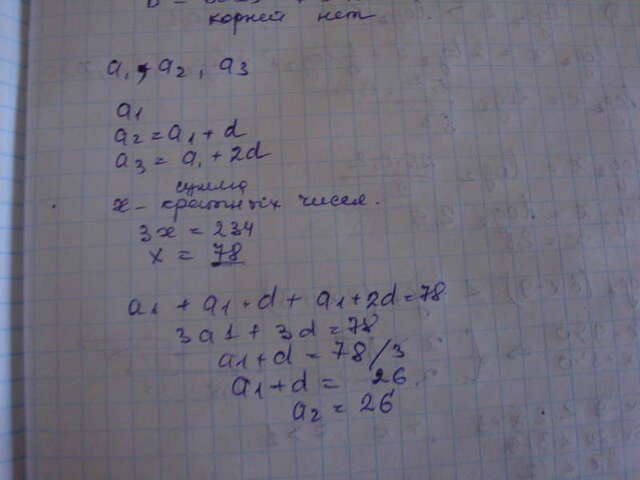 корней нет
a₁, a₂, a₃
a₁
a₂ = a₁ + d
a₃ = a₁ + 2d
сумма
x – кратных чисел.
3x = 234
x = 78
a₁ + a₁ + d + a₁ + 2d = 78
3a1 + 3d = 78
a₁ + d = 78/3
a₁ + d = 26
a₂ = 26